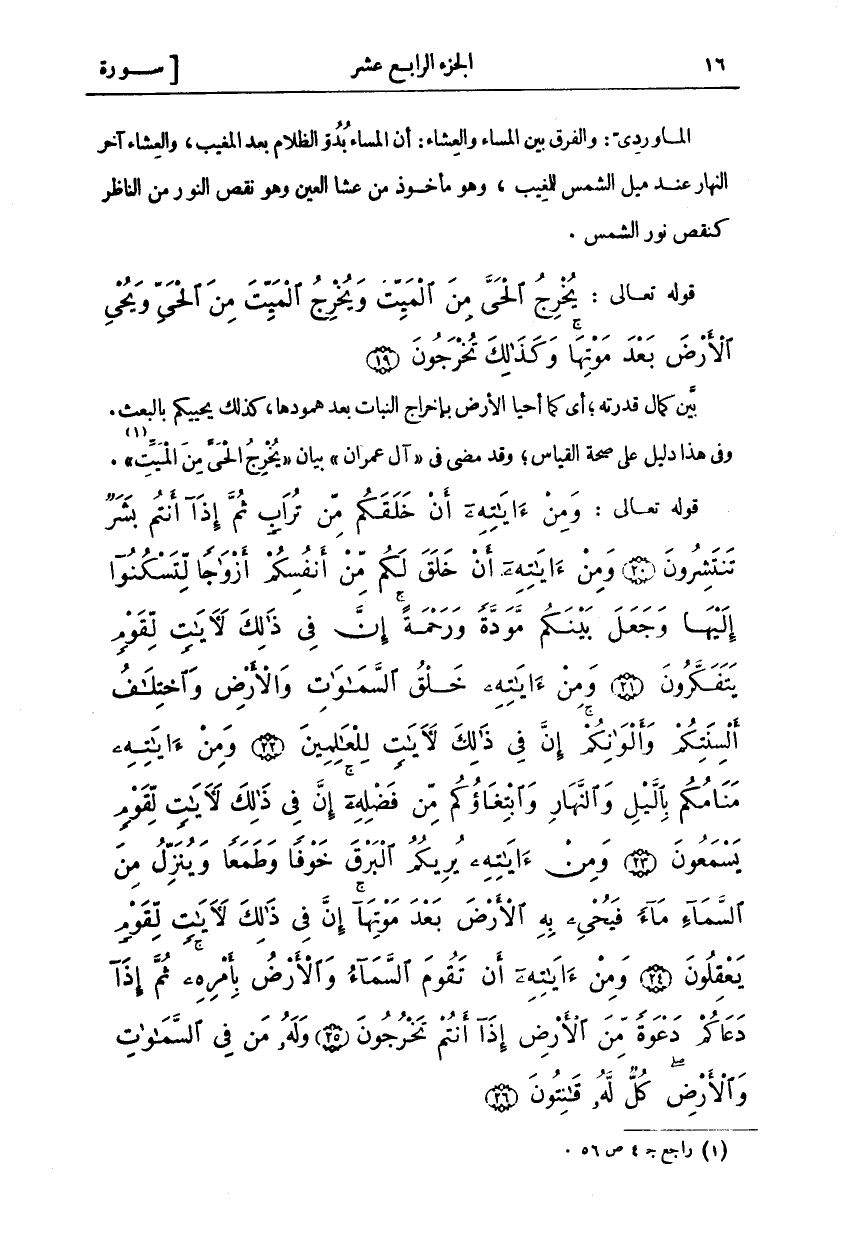 ١٦ الجزء الرابع عشر [ ســورة
المـاوردىّ : والفرق بين المساء والعِشاء : أن المساء بُدُوّ الظلام بعد المغيب ، والعِشاء آخر
النهار عنـد ميل الشمس للمغيب ، وهو مأخـوذ من عشا العين وهو نقص النور من الناظر
كنقص نور الشمس .
قوله تعـالى : يُخْرِجُ ٱلْحَىَّ مِنَ ٱلْمَيِّتِ وَيُخْرِجُ ٱلْمَيِّتَ مِنَ ٱلْحَىِّ وَيُحْىِ
ٱلْأَرْضَ بَعْدَ مَوْتِهَا ۚ وَكَذَٰلِكَ تُخْرَجُونَ ۝١٩
بيّن كمال قدرته ؛ أى كما أحيا الأرض بإخراج النبات بعد همودها ، كذلك يحييكم بالبعث .
وفى هذا دليل على صحة القياس ؛ وقد مضى فى « آل عمران » بيان « يُخْرِجُ الْحَىَّ مِنَ الْمَيِّتِ » (١) .
قوله تعـالى : وَمِنْ ءَايَـٰتِهِۦٓ أَنْ خَلَقَكُم مِّن تُرَابٍ ثُمَّ إِذَآ أَنتُم بَشَرٌ
تَنتَشِرُونَ ۝٢٠ وَمِنْ ءَايَـٰتِهِۦٓ أَنْ خَلَقَ لَكُم مِّنْ أَنفُسِكُمْ أَزْوَٰجًا لِّتَسْكُنُوٓا۟
إِلَيْهَـا وَجَعَلَ بَيْنَكُم مَّوَدَّةً وَرَحْمَةً ۚ إِنَّ فِى ذَٰلِكَ لَـَٔايَـٰتٍ لِّقَوْمٍ
يَتَفَكَّرُونَ ۝٢١ وَمِنْ ءَايَـٰتِهِۦ خَلْقُ ٱلسَّمَـٰوَٰتِ وَٱلْأَرْضِ وَٱخْتِلَـٰفُ
أَلْسِنَتِكُمْ وَأَلْوَٰنِكُمْ ۚ إِنَّ فِى ذَٰلِكَ لَـَٔايَـٰتٍ لِّلْعَـٰلِمِينَ ۝٢٢ وَمِنْ ءَايَـٰتِهِۦ
مَنَامُكُم بِٱلَّيْلِ وَٱلنَّهَارِ وَٱبْتِغَآؤُكُم مِّن فَضْلِهِۦٓ ۚ إِنَّ فِى ذَٰلِكَ لَـَٔايَـٰتٍ لِّقَوْمٍ
يَسْمَعُونَ ۝٢٣ وَمِنْ ءَايَـٰتِهِۦ يُرِيكُمُ ٱلْبَرْقَ خَوْفًا وَطَمَعًا وَيُنَزِّلُ مِنَ
ٱلسَّمَآءِ مَآءً فَيُحْىِۦ بِهِ ٱلْأَرْضَ بَعْدَ مَوْتِهَآ ۚ إِنَّ فِى ذَٰلِكَ لَـَٔايَـٰتٍ لِّقَوْمٍ
يَعْقِلُونَ ۝٢٤ وَمِنْ ءَايَـٰتِهِۦٓ أَن تَقُومَ ٱلسَّمَآءُ وَٱلْأَرْضُ بِأَمْرِهِۦ ۚ ثُمَّ إِذَا
دَعَاكُمْ دَعْوَةً مِّنَ ٱلْأَرْضِ إِذَآ أَنتُمْ تَخْرُجُونَ ۝٢٥ وَلَهُۥ مَن فِى ٱلسَّمَـٰوَٰتِ
وَٱلْأَرْضِ ۖ كُلٌّ لَّهُۥ قَـٰنِتُونَ ۝٢٦
(١) راجع جـ ٤ ص ٥٦ .